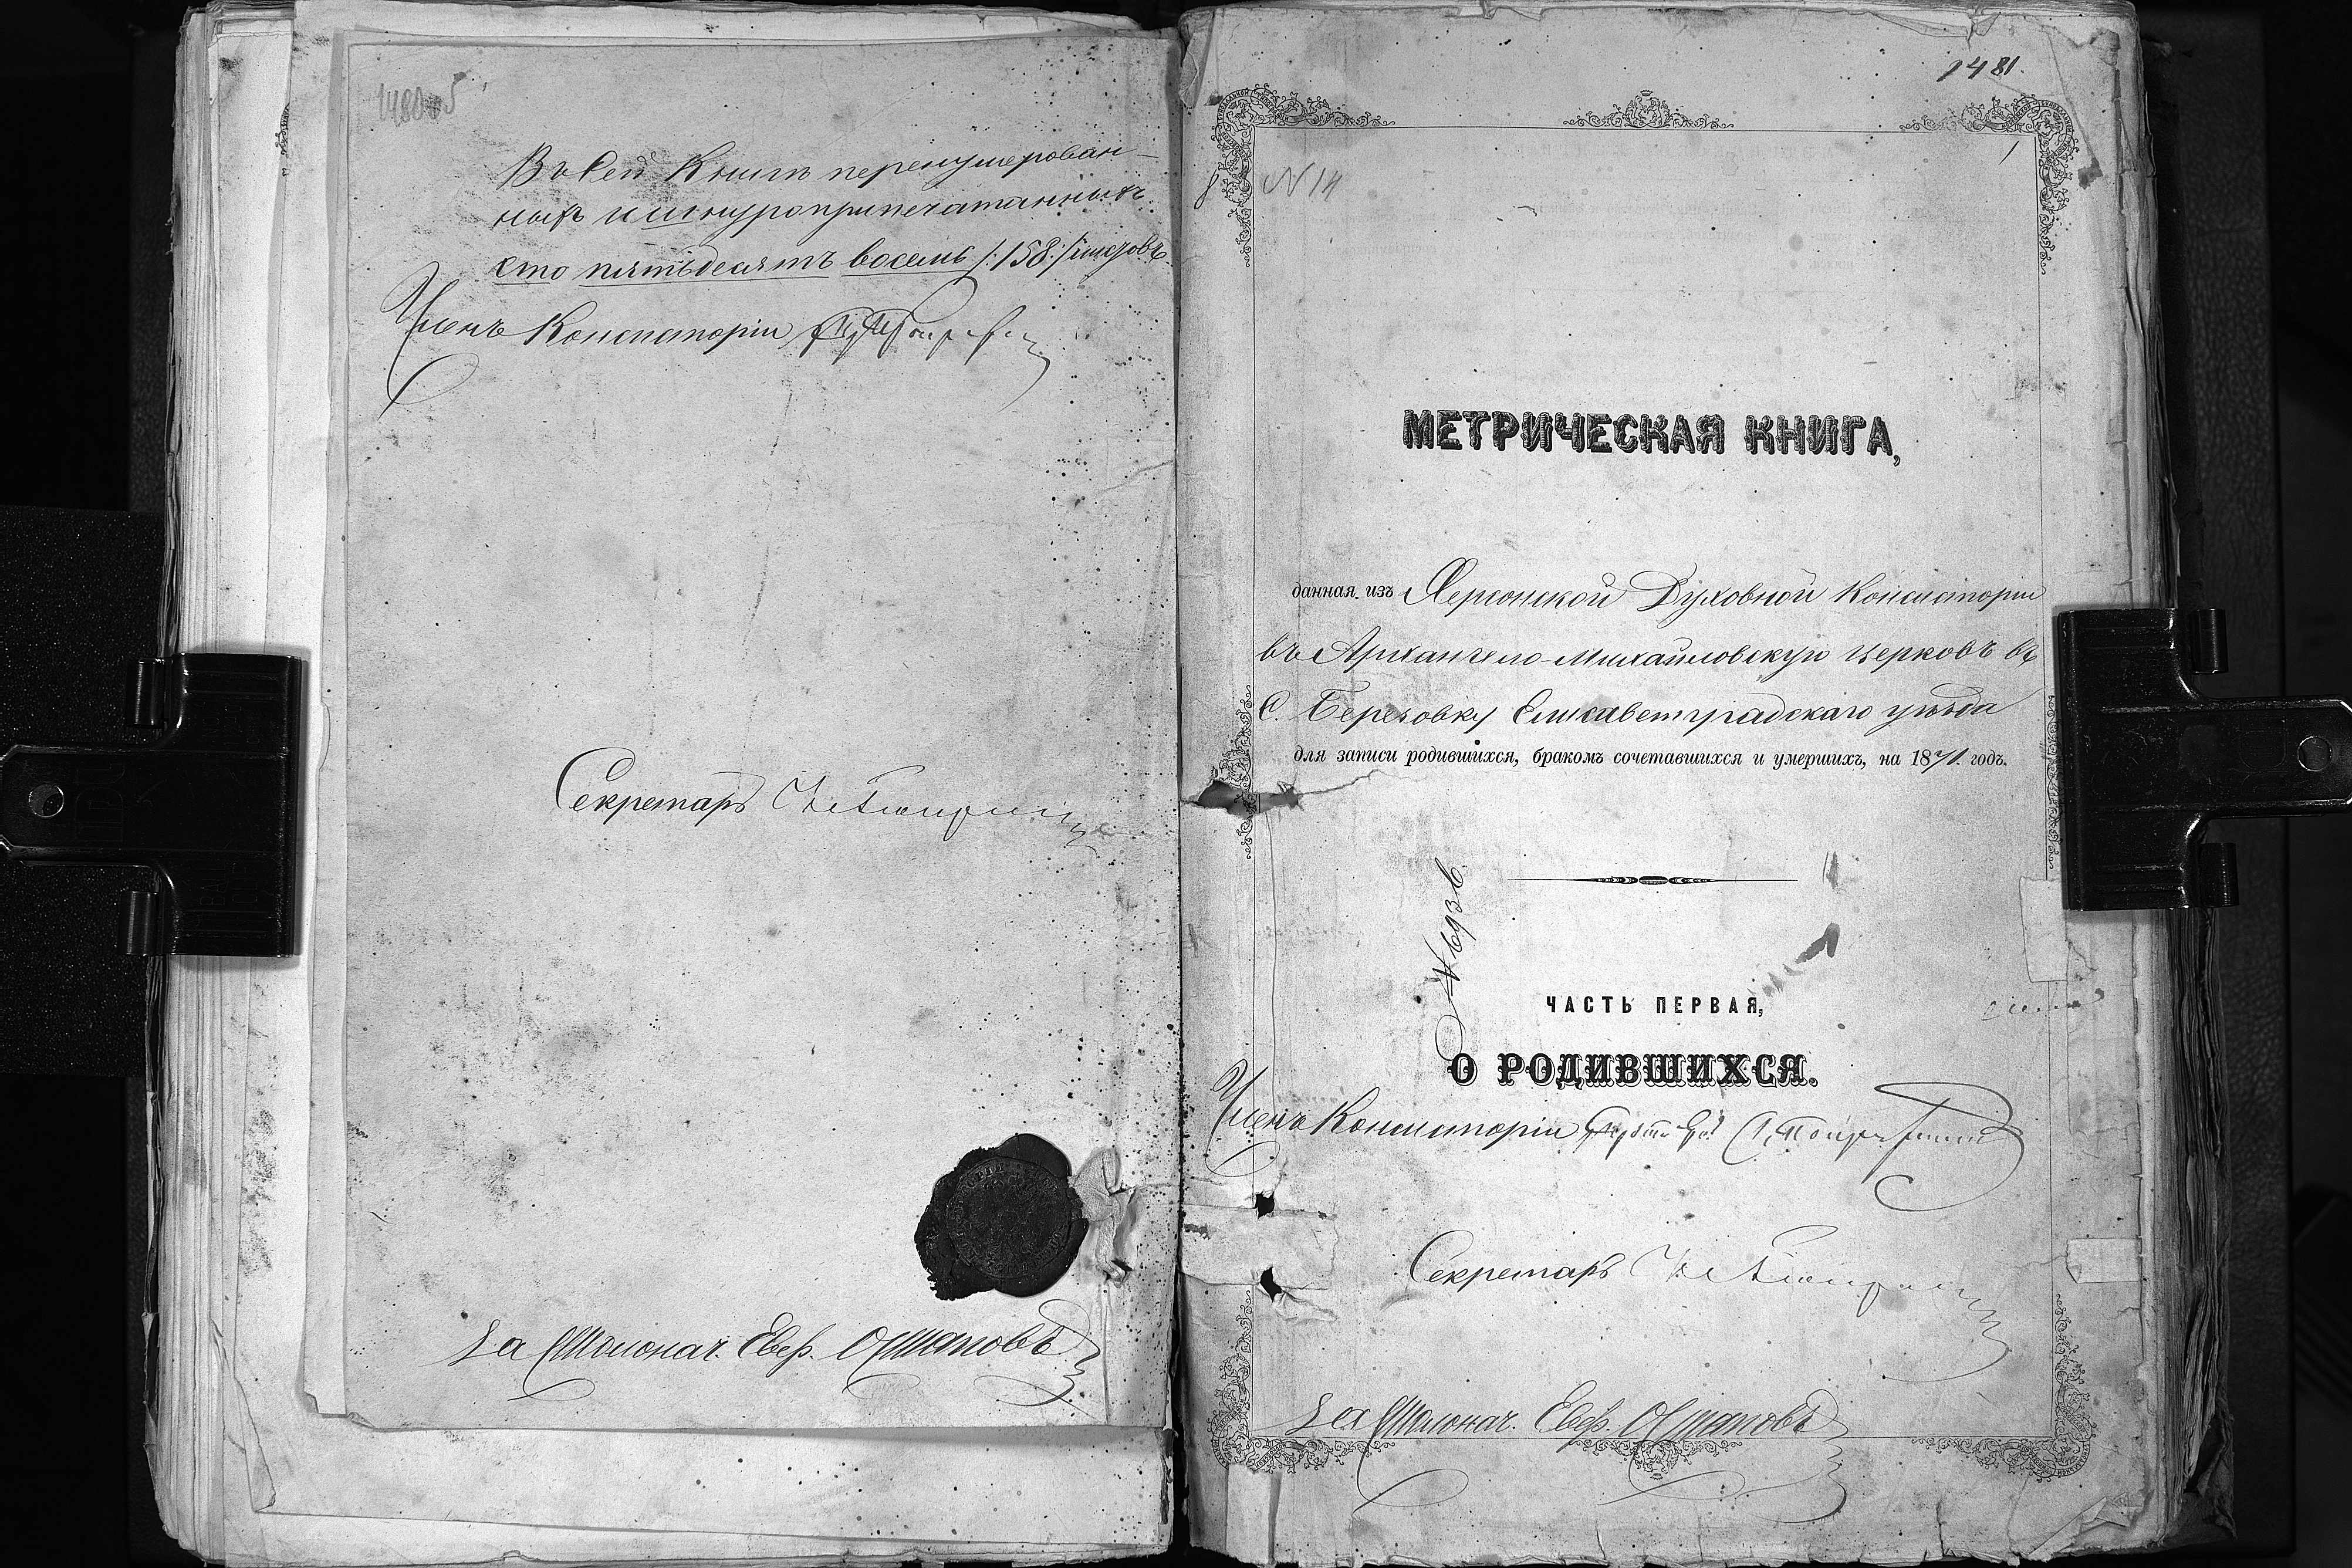 Въ сей Книгѣ перенумерован-
ныхъ и шнуроприпечатанныхъ
сто пятьдесятъ восемь /:158:/ листовъ.
Членъ Консисторіи
Секретарь
За Столонач. Евф. Остаповъ
1481.
N 14
МЕТРИЧЕСКАЯ КНИГА,
данная изъ Херсонской Духовной Консисторіи
въ Архангело-Михайловскую церковь въ
С. Березовку Елисаветградскаго уѣзда
для записи родившихся, бракомъ сочетавшихся и умершихъ, на 1871. годъ.
ЧАСТЬ ПЕРВАЯ,
О РОДИВШИХСЯ.
Членъ Консисторіи
Секретарь
За Столонач. Евф. Остаповъ